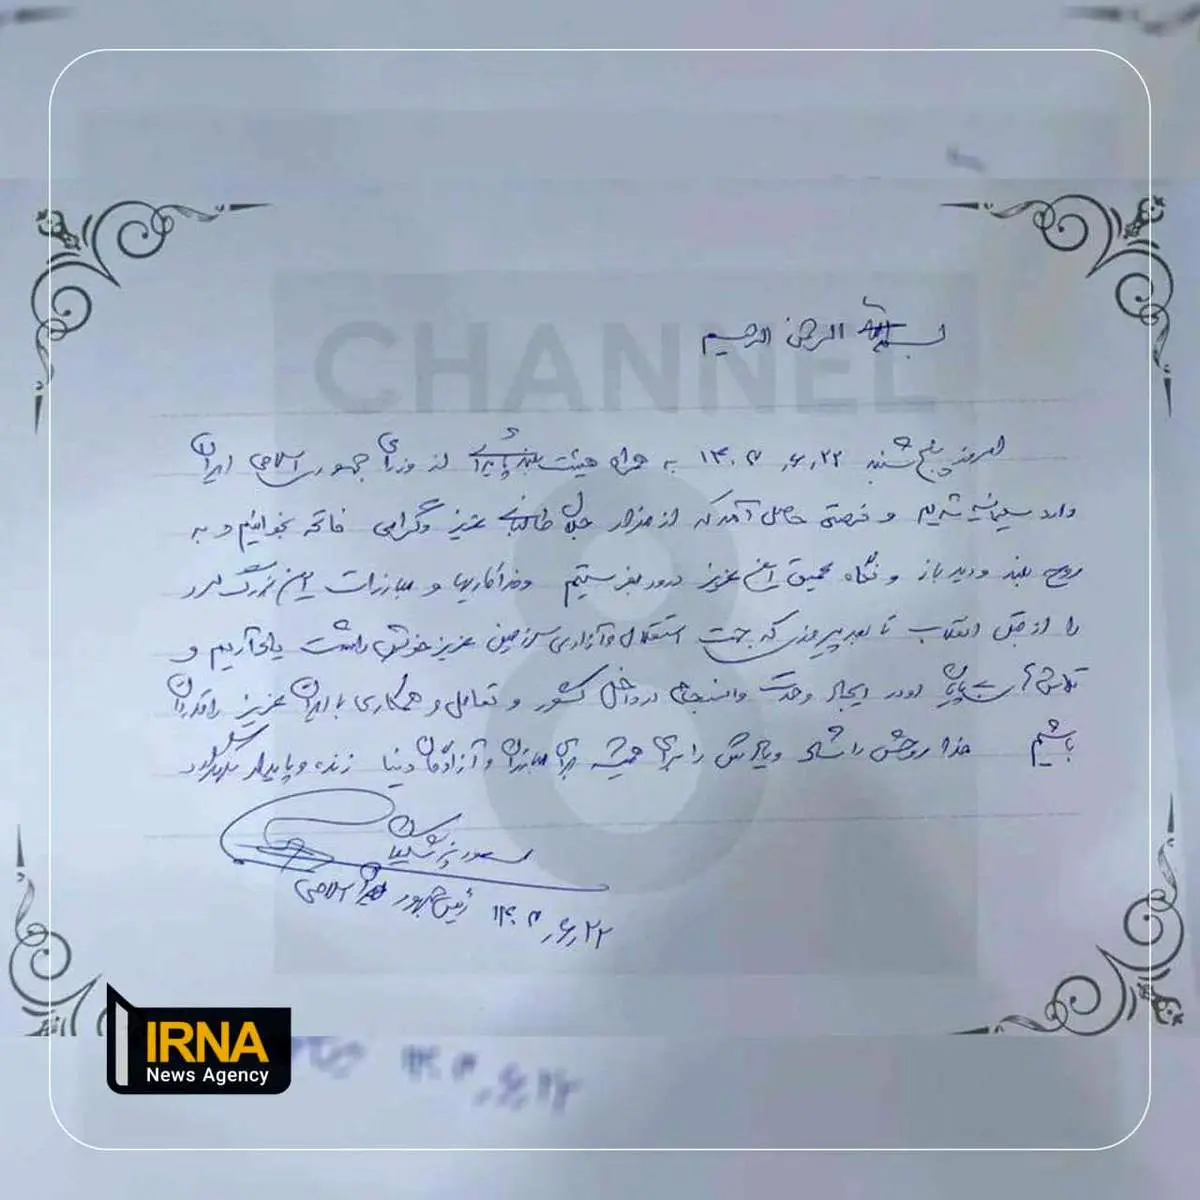 CHANNEL
8
بسم الله الرحمن الرحیم
امروز پنج شنبه ۱۴۰۳٫۶٫۲۲ به همراه هیئت بلندپایه‌ای از وزرای جمهوری اسلامی ایران
وارد سلیمانیه شدیم و فرصتی حاصل آمد که از مزار جلال طالبانی عزیز و گرامی فاتحه بخوانیم و به
روح بلند و دید باز و نگاه عمیق این عزیز درود بفرستیم و فداکاریها و مبارزات این بزرگ مرد
را از قبل انقلاب تا بعد پیروزی که جهت استقلال و آزادی سرزمین عزیز خویش داشت یاد آریم و
تلاش بی پایان او در ایجاد وحدت و انسجام در داخل کشور و تعامل و همکاری با ایران عزیز را قدردان
باشیم خدا روحش را شاد و یادش را برای همیشه برای مبارزان و آزادگان دنیا زنده و پایدار
مسعود پزشکیان
رئیس جمهور اسلامی
۱۴۰۳٫۶٫۲۲
IRNA
News Agency